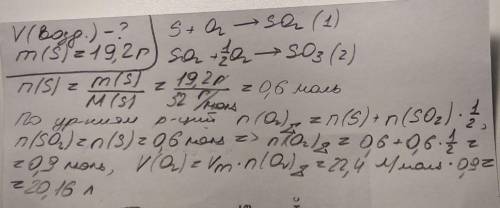 V(возд.) - ?
m(S) = 19,2 г
S + O₂ → SO₂ (1)
SO₂ + 1/2 O₂ → SO₃ (2)
n(S) = m(S)/M(S) = 19,2 г / 32 г/моль = 0,6 моль
По ур-ниям р-ций n(O₂)Σ = n(S) + n(SO₂) · 1/2,
n(SO₂) = n(S) = 0,6 моль => n(O₂)Σ = 0,6 + 0,6 · 1/2 =
= 0,9 моль, V(O₂) = Vm · n(O₂)Σ = 22,4 л/моль · 0,9 =
= 20,16 л